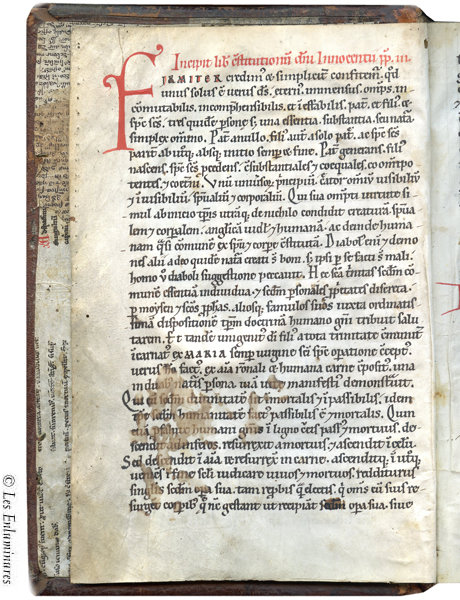 Incipit lib' c̄stitutionū dn̄i Innocentii pp. iii
FIRMITER credim' & simplicit̄ confitem̄. qd
unus solus ē verus ds̄. etern'. immensus. omp̄s. in
comutabilis. incomp̄hensibilis. et īeffabilis. pat̄. et fili'. &
sp̄c sc̄s. tres quidē p̄sone s; una essentia. substantia. seu natā
simplex om̄ino. Pat̄ a nullo. fili' aut̄ a solo pat̄. ac sp̄c sc̄s
parit̄ ab utq̨. absq̨ initio semp̄ & fine. Pat̄ generans. fili'
nascens. sp̄c sc̄s p̄cedens. c̄substantiales et coequales. coom̄ipo
tentes. et coet̄ni. Unū universoȝ p̄ncipiū. C̄ator om̄iū visibiliū
et īvisibiliū. sp̄ualiū et corporaliū. Qui sua om̄ip̄ti virtute si
mul ab initio tp̄is utāq̨ de nichilo condidit creaturā. sp̄ua
lem et corp̄alem. anglicā vidl' et humanā. ac deinde huma
nam q̄si cōmunē ex sp̄u et corpe c̄stitutā. Diabol' eni et demo
nes alii a deo quidē natā creati s̄ boni. s; ip̄i p̄ se facti s̄ mali.
homo v̄o diaboli suggestione peccavit. Hec sc̄a t̄nitas sedm̄ co
munē essentiā individua. et sedm̄ p̄sonales p̄p̄etates discreta.
p̄ moysen et sc̄os p̄phas. aliosq̨ famulos suos iuxta ordinatis
simā dispositionē tp̄m doctrinā humano gn̄i tribuit saluta
rem. Et tandē unigenit' di fili' a tota t̄nitate cōmunit̄
īcarnat' ex MARIA semp̄ virgine sc̄i sp̄c op̄atione c̄cept'.
verus hō fact'. ex aīa r̄onali & humana carne c̄posit'. una
in duab' natīs p̄sona. viā vite manifesti' demonst̄vit.
Qui cū sedm̄ divinitatē sit īmortalis et īpassibilis. idem
ip̄e sedm̄ humanitatē fact' passibilis & mortalis. Quin
etiā p̄ salute humani gn̄is ī ligno c̄cis pass' et mortuus. de
scendit ad inferos. resurrexit a mortuis. et ascendit ī celū.
Sed descendit ī aīa. et resurrex̄ in carne. ascenditq̨ ī utq̨.
vent' ī fine seli. iudicare vivos et mortuos. redditurus
singlis sedm̄ op̄a sua. tam rep̄bis q̄ electis. q̄ om̄s cū suis re
surgēt corpib' q̄ n̄c gestant. ut recipiāt sedm̄ op̄a sua. sive
© Les Enluminures